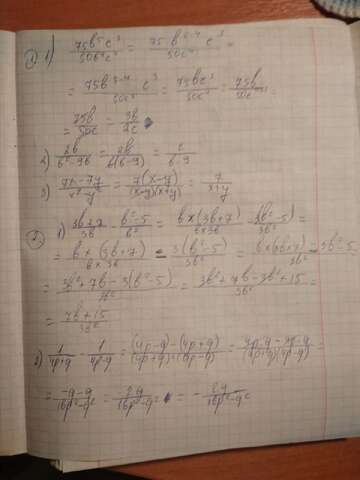 1) 1) 75b⁵c³/50b⁴c⁴ = 75b⁵⁻⁴c³/50c⁴ =
= 75b⁵⁻⁴c³/50c⁴ = 75bc³/50c⁴ = 75b/50c⁴⁻³ =
= 75b/50c = 3b/2c
2) /b²-9b = /b(b-9) = /b-9
3) 7x-7y/x²-y² = 7(x-y)/(x-y)(x+y) = 7/x+y
2) 1) 3b+7/3b - b²-5/b² = b×(3b+7)/b×3b - 3(b²-5)/3b² =
= b×(3b+7)/b×3b - 3(b²-5)/3b² = b×(3b+7)/3b² - 3b²-5
= 3b²+7b-3(b²-5)/3b² = 3b²+7b-3b²+15/3b² =
= 7b+15/3b²
2) 1/4p+q - 1/4p-q = (4p-q)-(4p+q)/(4p+q)×(4p-q) = 4p-q-4p-q/(4p+q)(4p-q) =
= -q-q/16p²-q² = 2q/16p²-q² = - 2q/16p²-q²